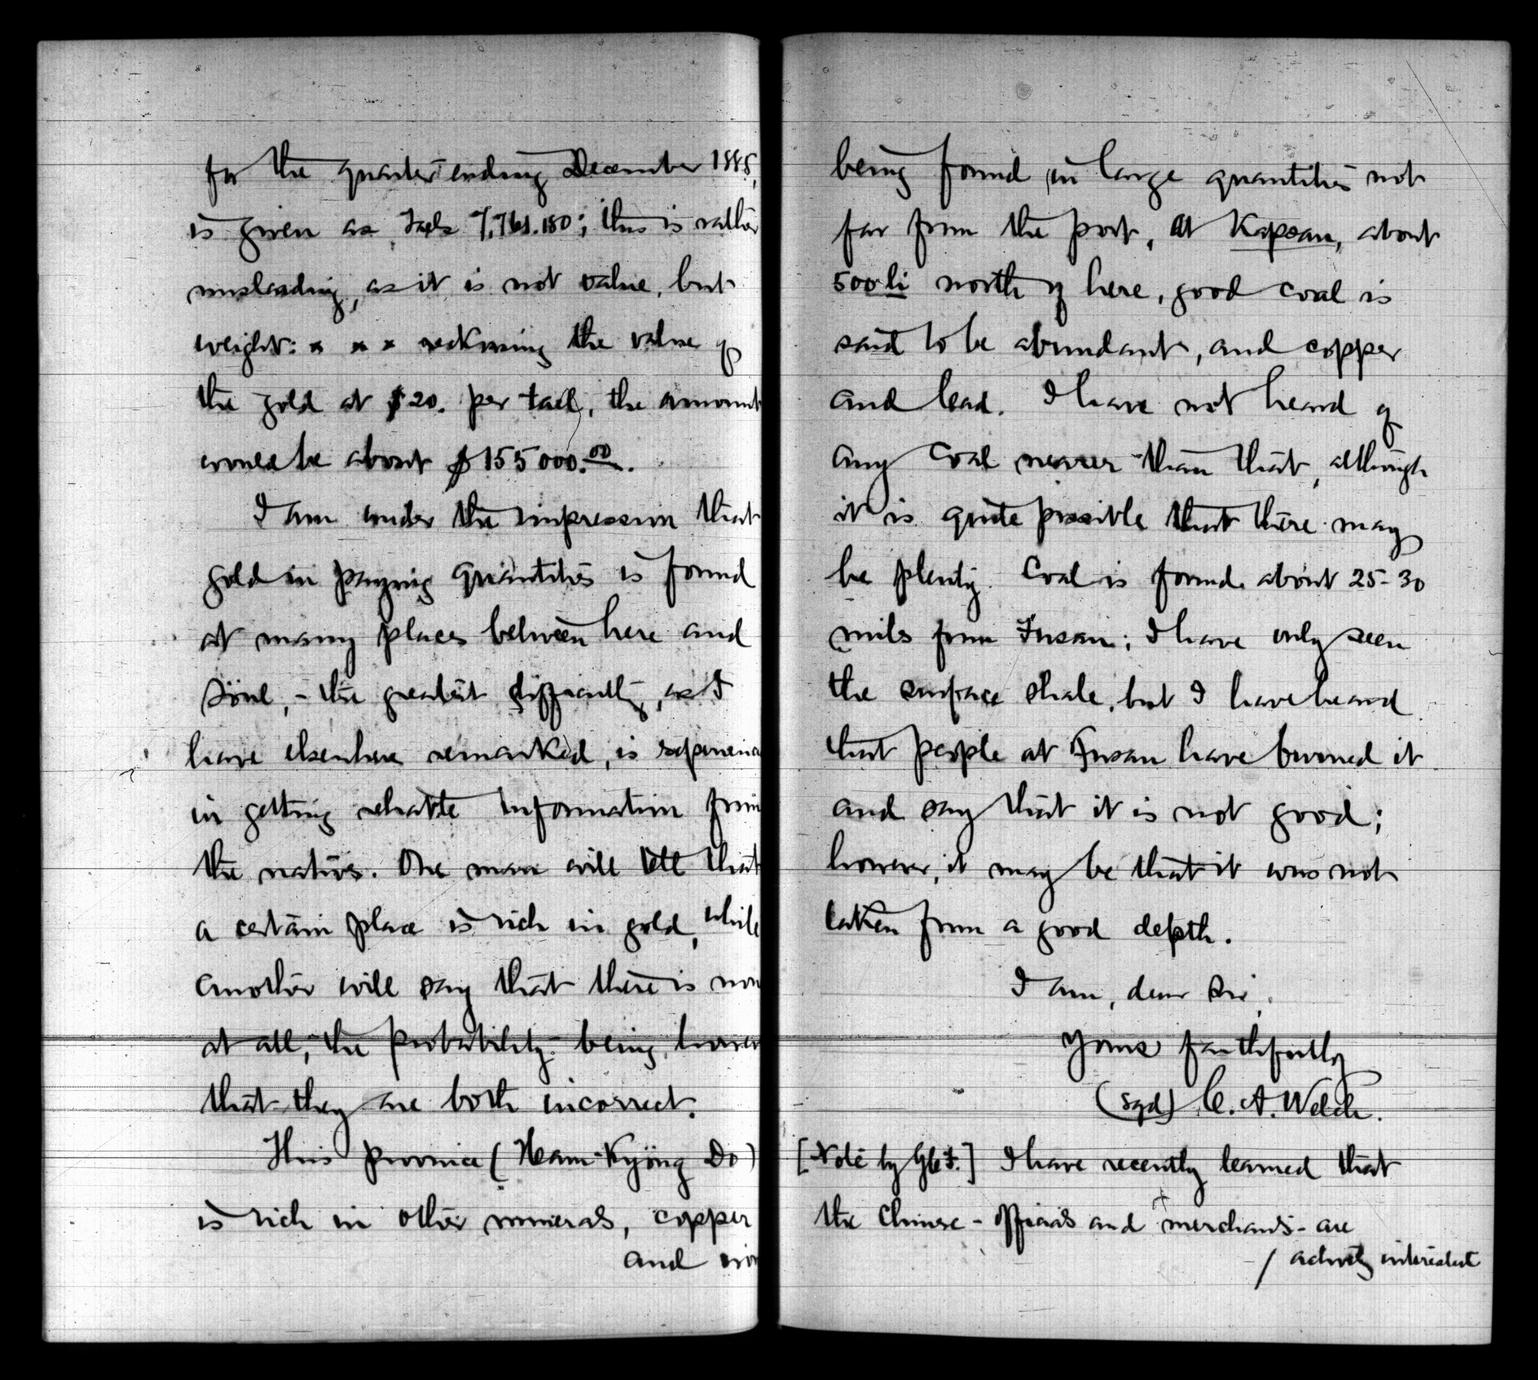 for the quarter ending December 1885,
is given as Taels 7,761.180; this is rather
misleading, as it is not value, but
weight: x x x reckoning the value of
the gold at $20. per tael, the amount
would be about $155000.00.
I am under the impression that
gold in paying quantities is found
at many places between here and
Söul, - the greatest difficulty, as I
have elsewhere remarked, is
in getting reliable information from
the natives. One man will tell that
a certain place is rich in gold, while
another will say that there is non
at all, the probability being, however
that they are both incorrect.
This province (Ham-Kyöng Do)
is rich in other minerals, copper
and iron
being found in large quantities not
far from the port, at Kapsan, about
500 li north of here, good coal is
said to be abundant, and copper
and lead. I have not heard of
any coal nearer than that, although
it is quite possible that there may
be plenty. Coal is found about 25-30
miles from Fusan; I have only seen
the surface shale, but I have heard
that people at Fusan have burned it
and say that it is not good;
however, it may be that it was not
taken from a good depth.
I am, dear Sir,
Yours faithfully
(sgd) C. A. Welch.
[Note by] I have recently learned that
the Chinese - officials and merchants - are
/ actively interested